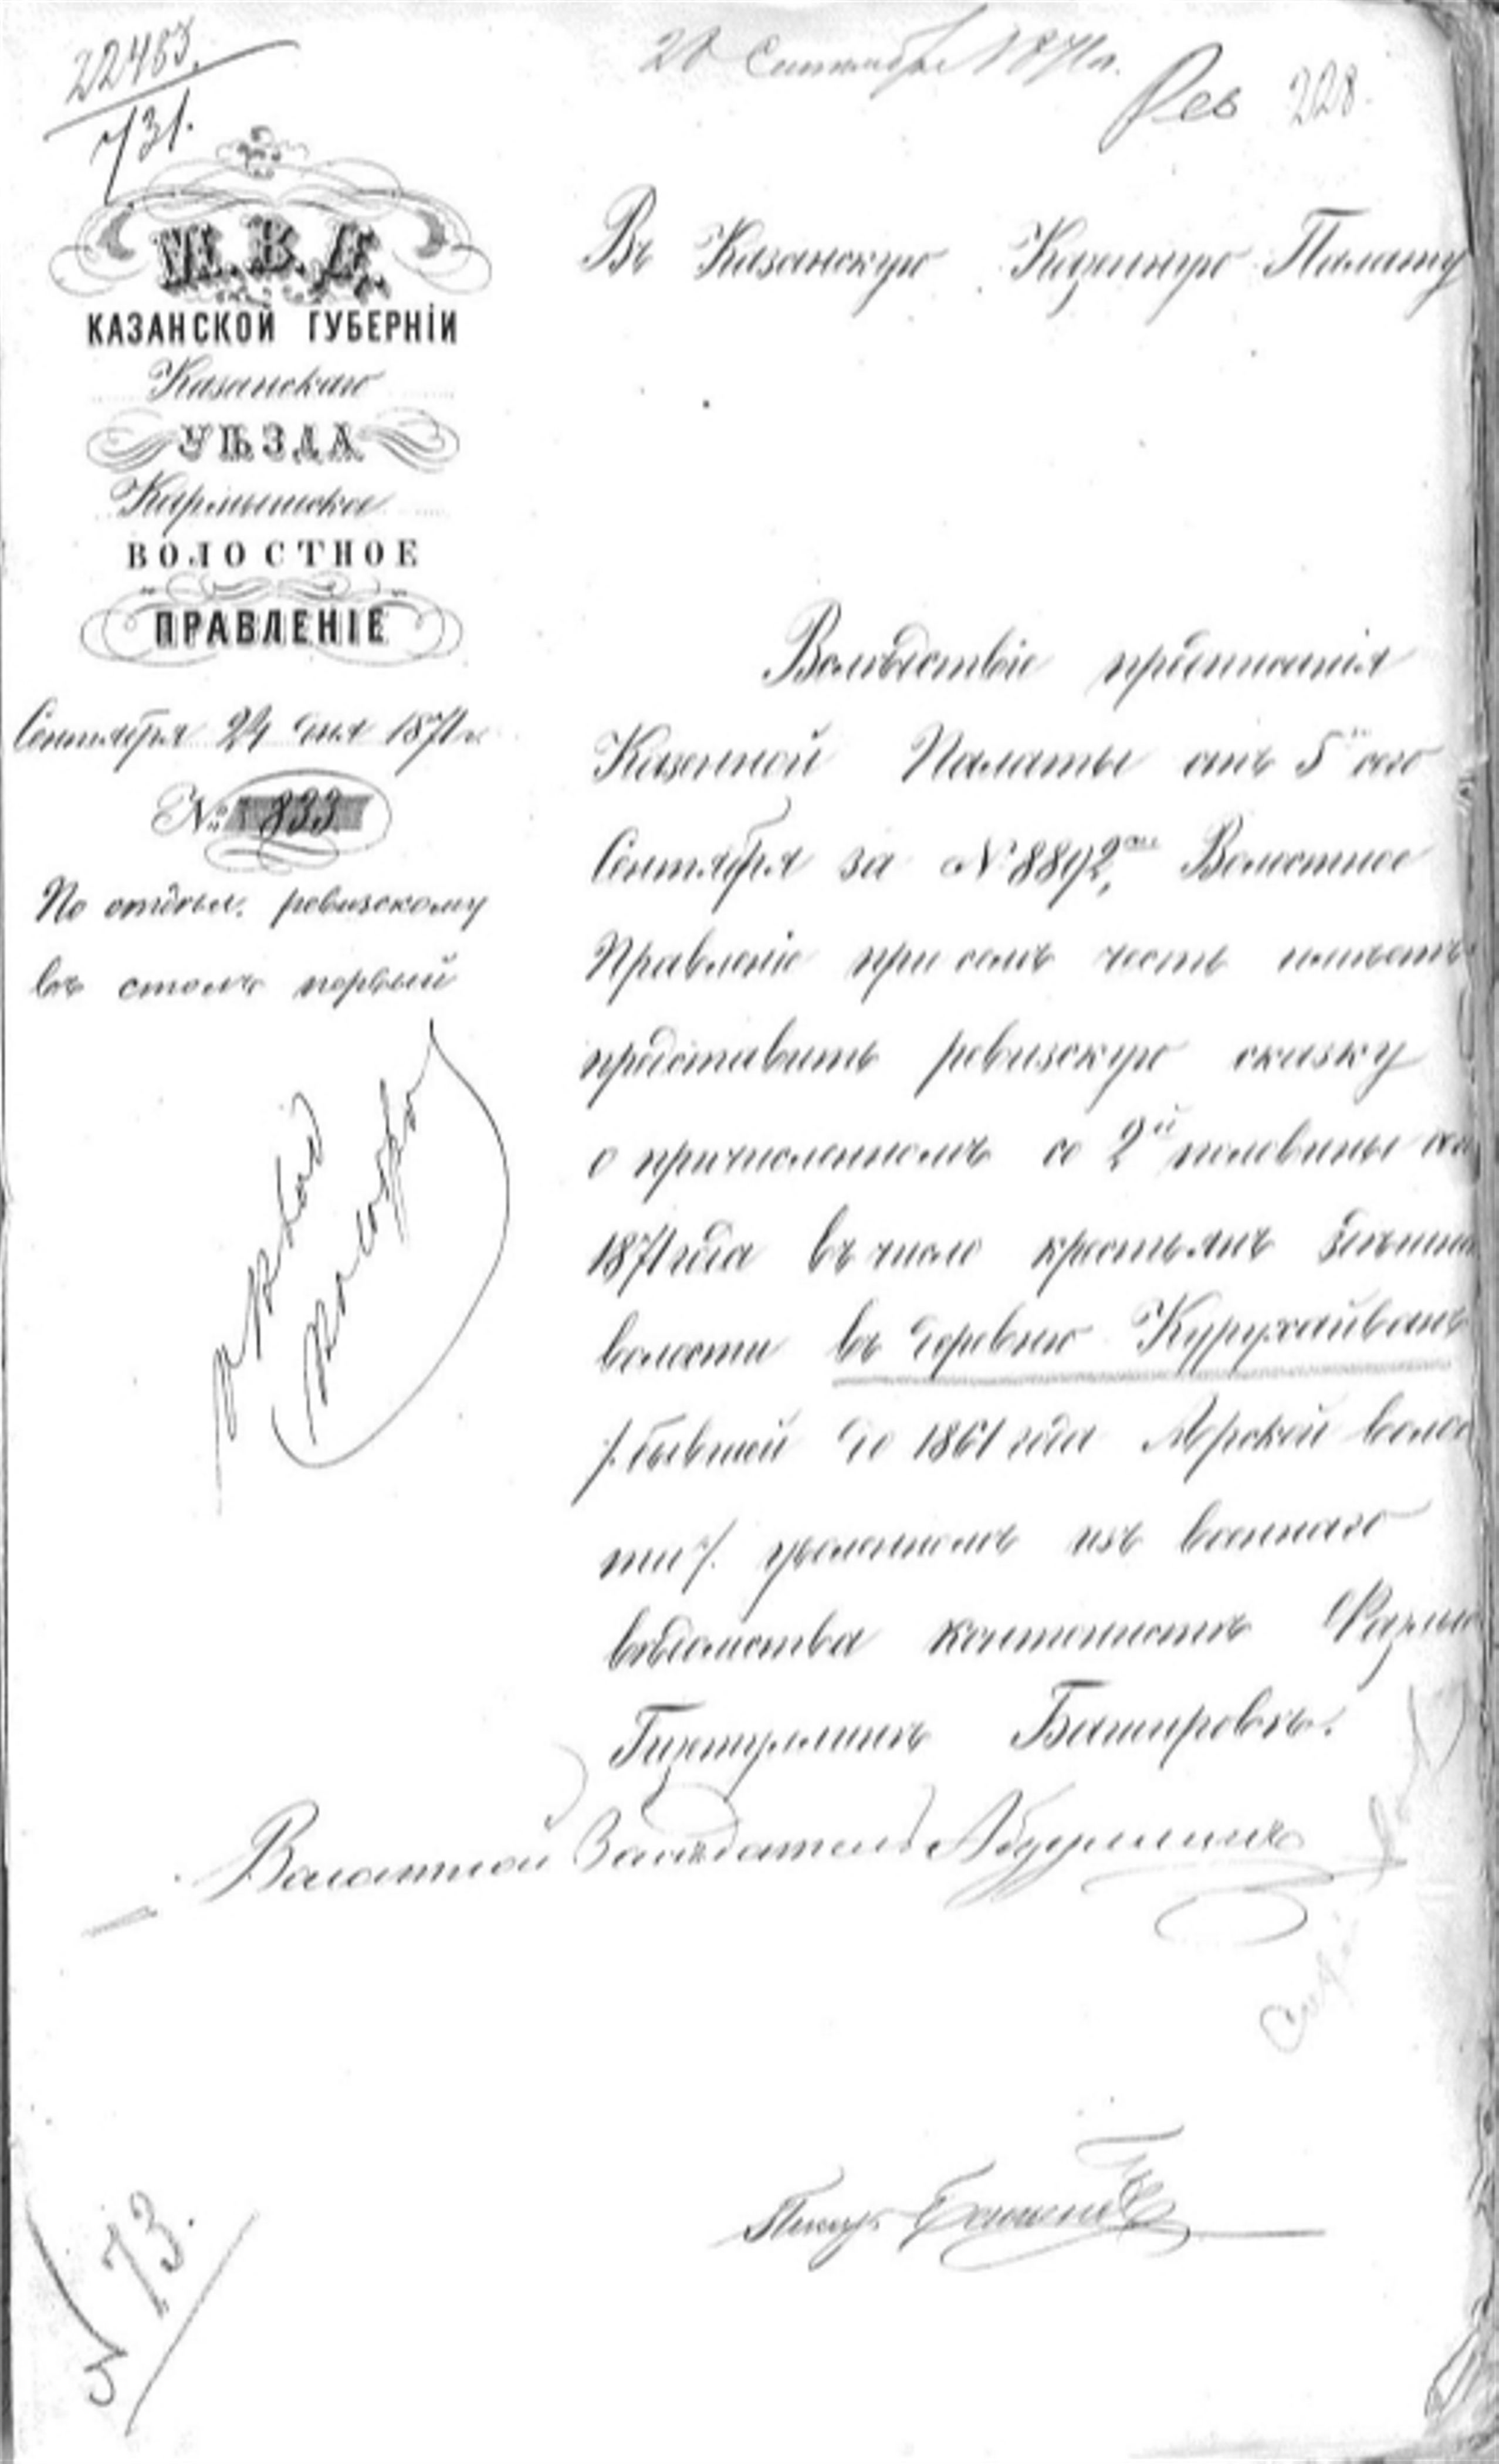 22463.
731.
20 Сентября 1871 г.
Рев 228.
М.В.Д.
КАЗАНСКОЙ ГУБЕРНІИ
Казанскаго
УѢЗДА
ВОЛОСТНОЕ
ПРАВЛЕНІЕ
Сентября 24 дня 1871 г.
№ 833
По отдѣл. ревизскому
въ столъ первый
Въ Казанскую Казенную Палату
Вслѣдствіе предписанія
Казенной Палаты отъ 5 сего
Сентября за № 8892, Волостное
Правленіе при семъ честь имѣетъ
представить ревизскую сказку
о причисленномъ со 2й половины сего
1871 года въ число крестьянъ здѣшней
волости въ деревню Курухайванъ
/. бывшей до 1861 года волос
ти /. уволенномъ изъ военнаго
вѣдомства кантонистѣ
Гизетуллинѣ Башировѣ.
Волостной Засѣдатель Абдуллинъ
Писарь
73.
5